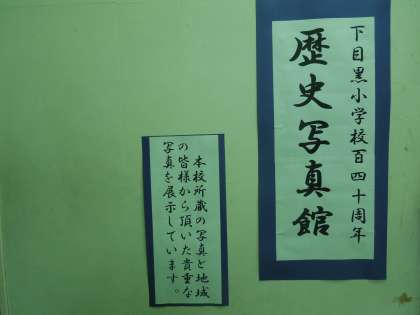 下目黒小学校百四十周年
歴史写真館
本校所蔵の写真と地域
の皆様から頂いた貴重な
写真を展示しています。